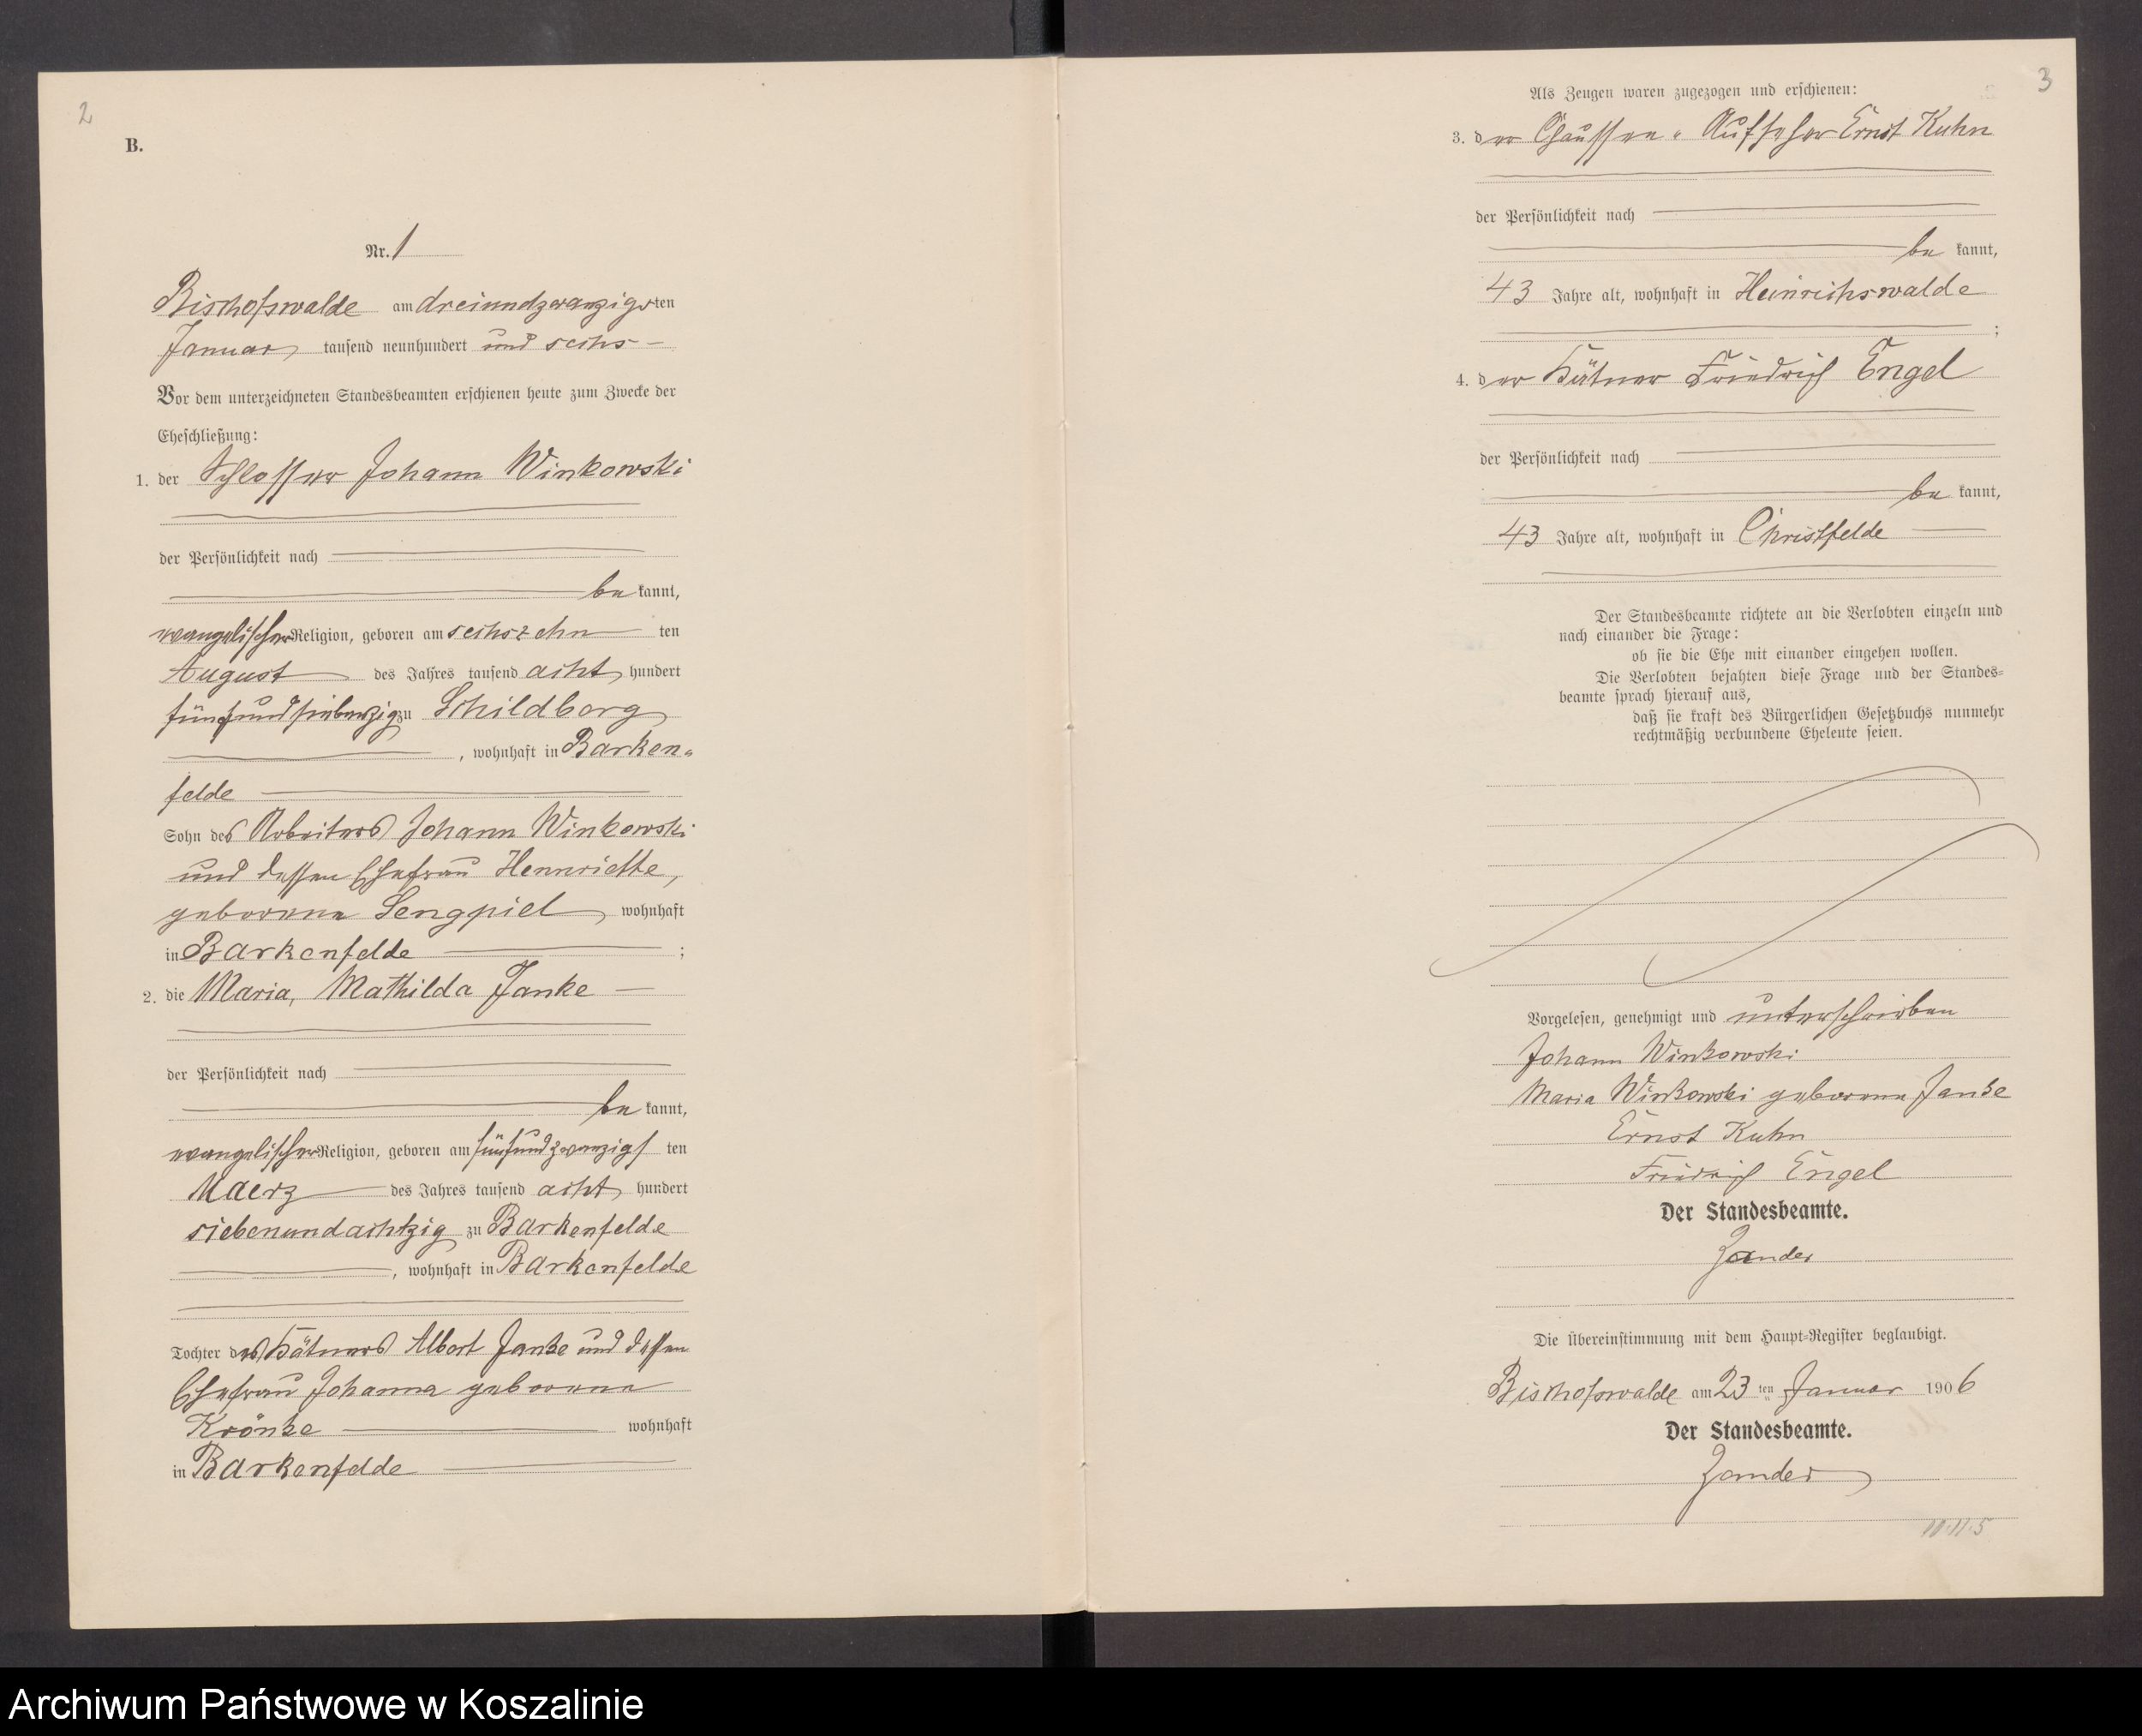 2
B.
Nr. 1
Bischofswalde am dreiundzwanzigsten
Januar tausend neunhundert und sechs -
Vor dem unterzeichneten Standesbeamten erschienen heute zum Zwecke der
Eheschließung:
1. der Schlosser Johann Winkowski
der Persönlichkeit nach
be kannt,
evangelischer Religion, geboren am sechszehn ten
August des Jahres tausend acht hundert
fünfundsiebenzig zu Schildberg
, wohnhaft in Barken-
felde
Sohn des Arbeiters Johann Winkowski
und dessen Ehefrau Hennriette,
geborene Sengpiel wohnhaft
in Barkenfelde ;
2. die Maria, Mathilda Janke
der Persönlichkeit nach
be kannt,
evangelischer Religion, geboren am fünfundzwanzigs ten
Maerz des Jahres tausend acht hundert
siebenundachtzig zu Barkenfelde
, wohnhaft in Barkenfelde
Tochter des Kätners Albert Janke und dessen
Ehefrau Johanna geborene
Krönke wohnhaft
in Barkenfelde
3
Als Zeugen waren zugezogen und erschienen:
3. der Chaussee-Aufseher Ernst Kuhn
der Persönlichkeit nach
be kannt,
43 Jahre alt, wohnhaft in Heinrichswalde
;
4. der Kätner Friedrich Engel
der Persönlichkeit nach
be kannt,
43 Jahre alt, wohnhaft in Christfelde
Der Standesbeamte richtete an die Verlobten einzeln und
nach einander die Frage:
ob sie die Ehe mit einander eingehen wollen.
Die Verlobten bejahten diese Frage und der Standes-
beamte sprach hierauf aus,
daß sie kraft des Bürgerlichen Gesetzbuchs nunmehr
rechtmäßig verbundene Eheleute seien.
Vorgelesen, genehmigt und unterschrieben
Johann Winkowski
Maria Winkowski geborene Janke
Ernst Kuhn
Friedrich Engel
Der Standesbeamte.
Zander
Die Übereinstimmung mit dem Haupt-Register beglaubigt.
Bischofswalde am 23 ten Januar 1906
Der Standesbeamte.
Zander
Archiwum Państwowe w Koszalinie